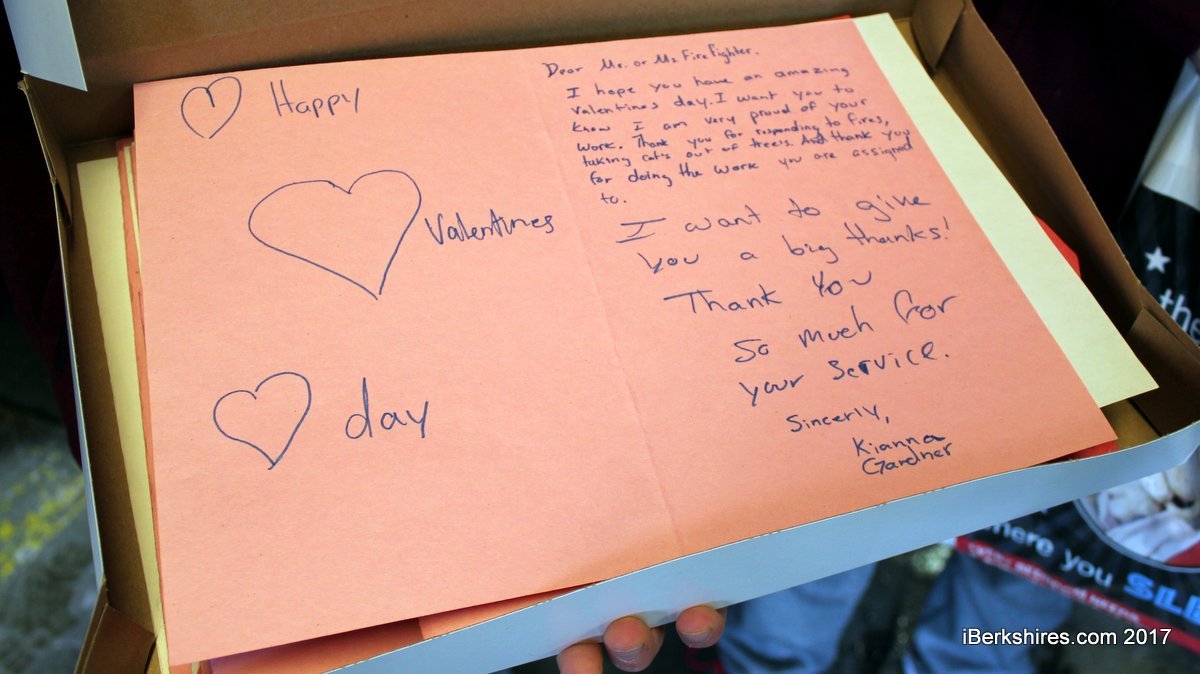 Happy
Valentines
day
Dear Mr. or Ms Firefighter.
I hope you have an amazing
Valentines day. I want you to
know I am very proud of your
work. Thank you for responding to fires,
taking cat's out of tree's. And thank you
for doing the work you are assigned
to.
I want to give
you a big thanks!
Thank you
so much for
your service.
Sincerly,
Kianna
Gardner
the
here you
iBerkshires.com 2017